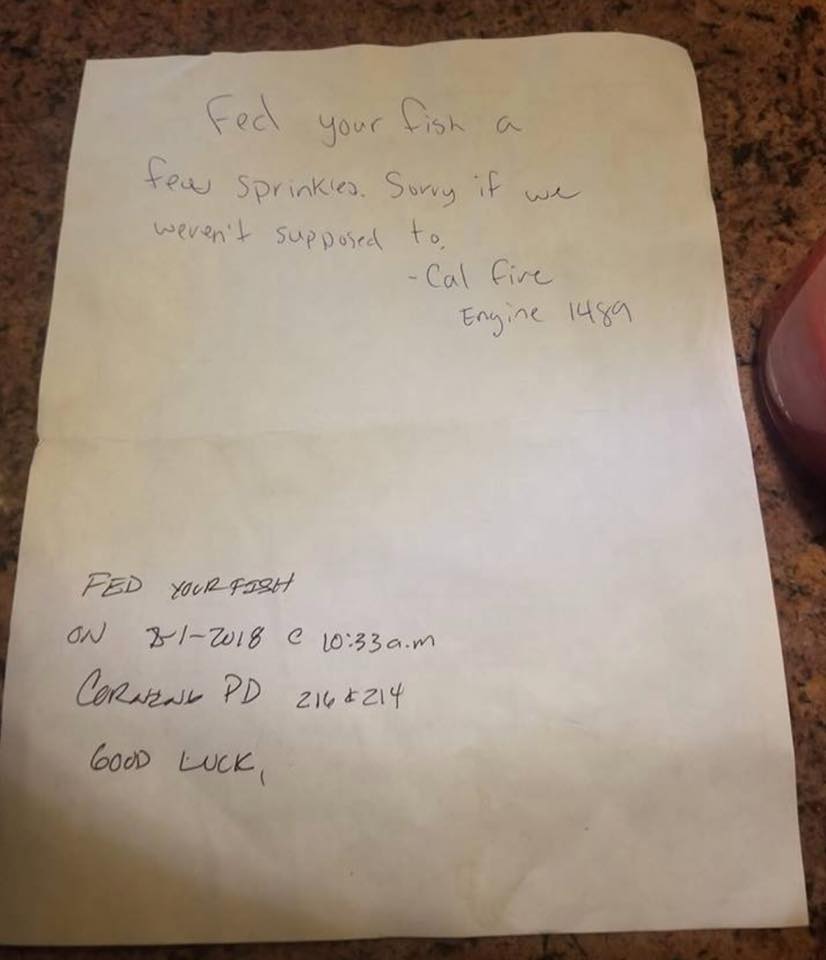 Fed your fish a
few sprinkles. Sorry if we
weren't supposed to.
- Cal Fire
Engine 1489
FED YOUR FISH
ON 8-1-2018 @ 10:33 a.m
CORNING PD 216 & 214
GOOD LUCK,